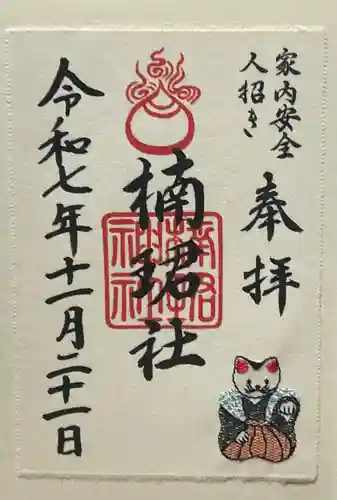 家内安全
人招き
奉拝
楠珺社
楠珺神社
令和七年十一月二十一日